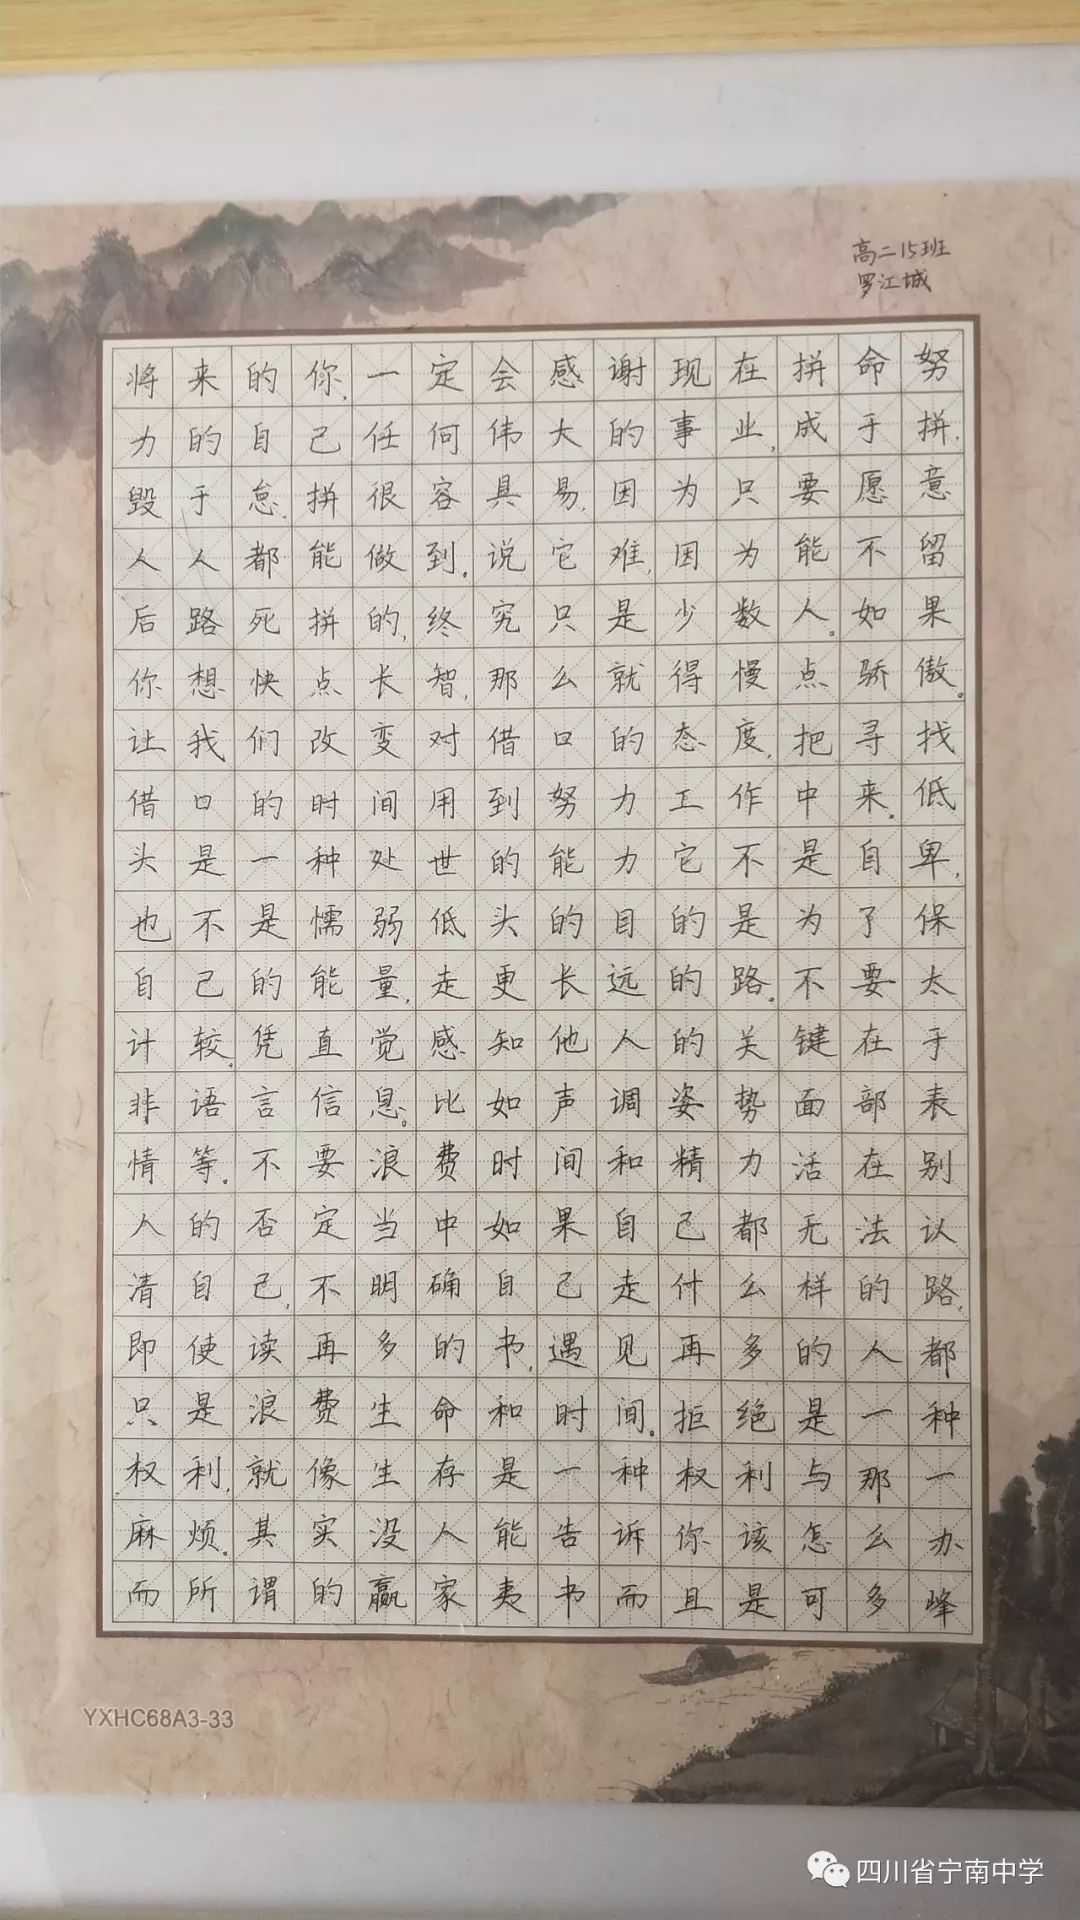 高二15班
罗江城
将来的你,一定会感谢现在拼命努
力的自己任何伟大的事业,成于拼,
毁于怠,拼很容具易,因为只要愿意
人人都能做到。说它难,因为能不留
后路死拼的,终究只是少数人。如果
你想快点长智,那么就得慢点骄傲。
让我们改变对借口的态度,把寻找
借口的时间用到努力工作中来。低
头是一种处世的能力它不是自卑,
也不是懦弱低头的目的是为了保
自己的能量,走更长远的路。不要太
计较。凭直觉感知他人的关键在于
非语言信息。比如声调姿势面部表
情等。不要浪费时间和精力活在别
人的否定当中如果自己都无法认
清自己,不明确自己走什么样的路,
即使读再多的书,遇见再多的人都
只是浪费生命和时间。拒绝是一种
权利,就像生存是一种权利与那一
麻烦。其实没人能告诉你该怎么办
而所谓的赢家夷书而且是可多峰
YXHC68A3-33
四川省宁南中学